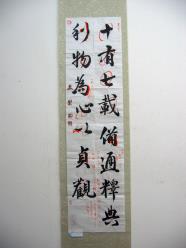 十有七載備通釋典
利物為心以貞觀